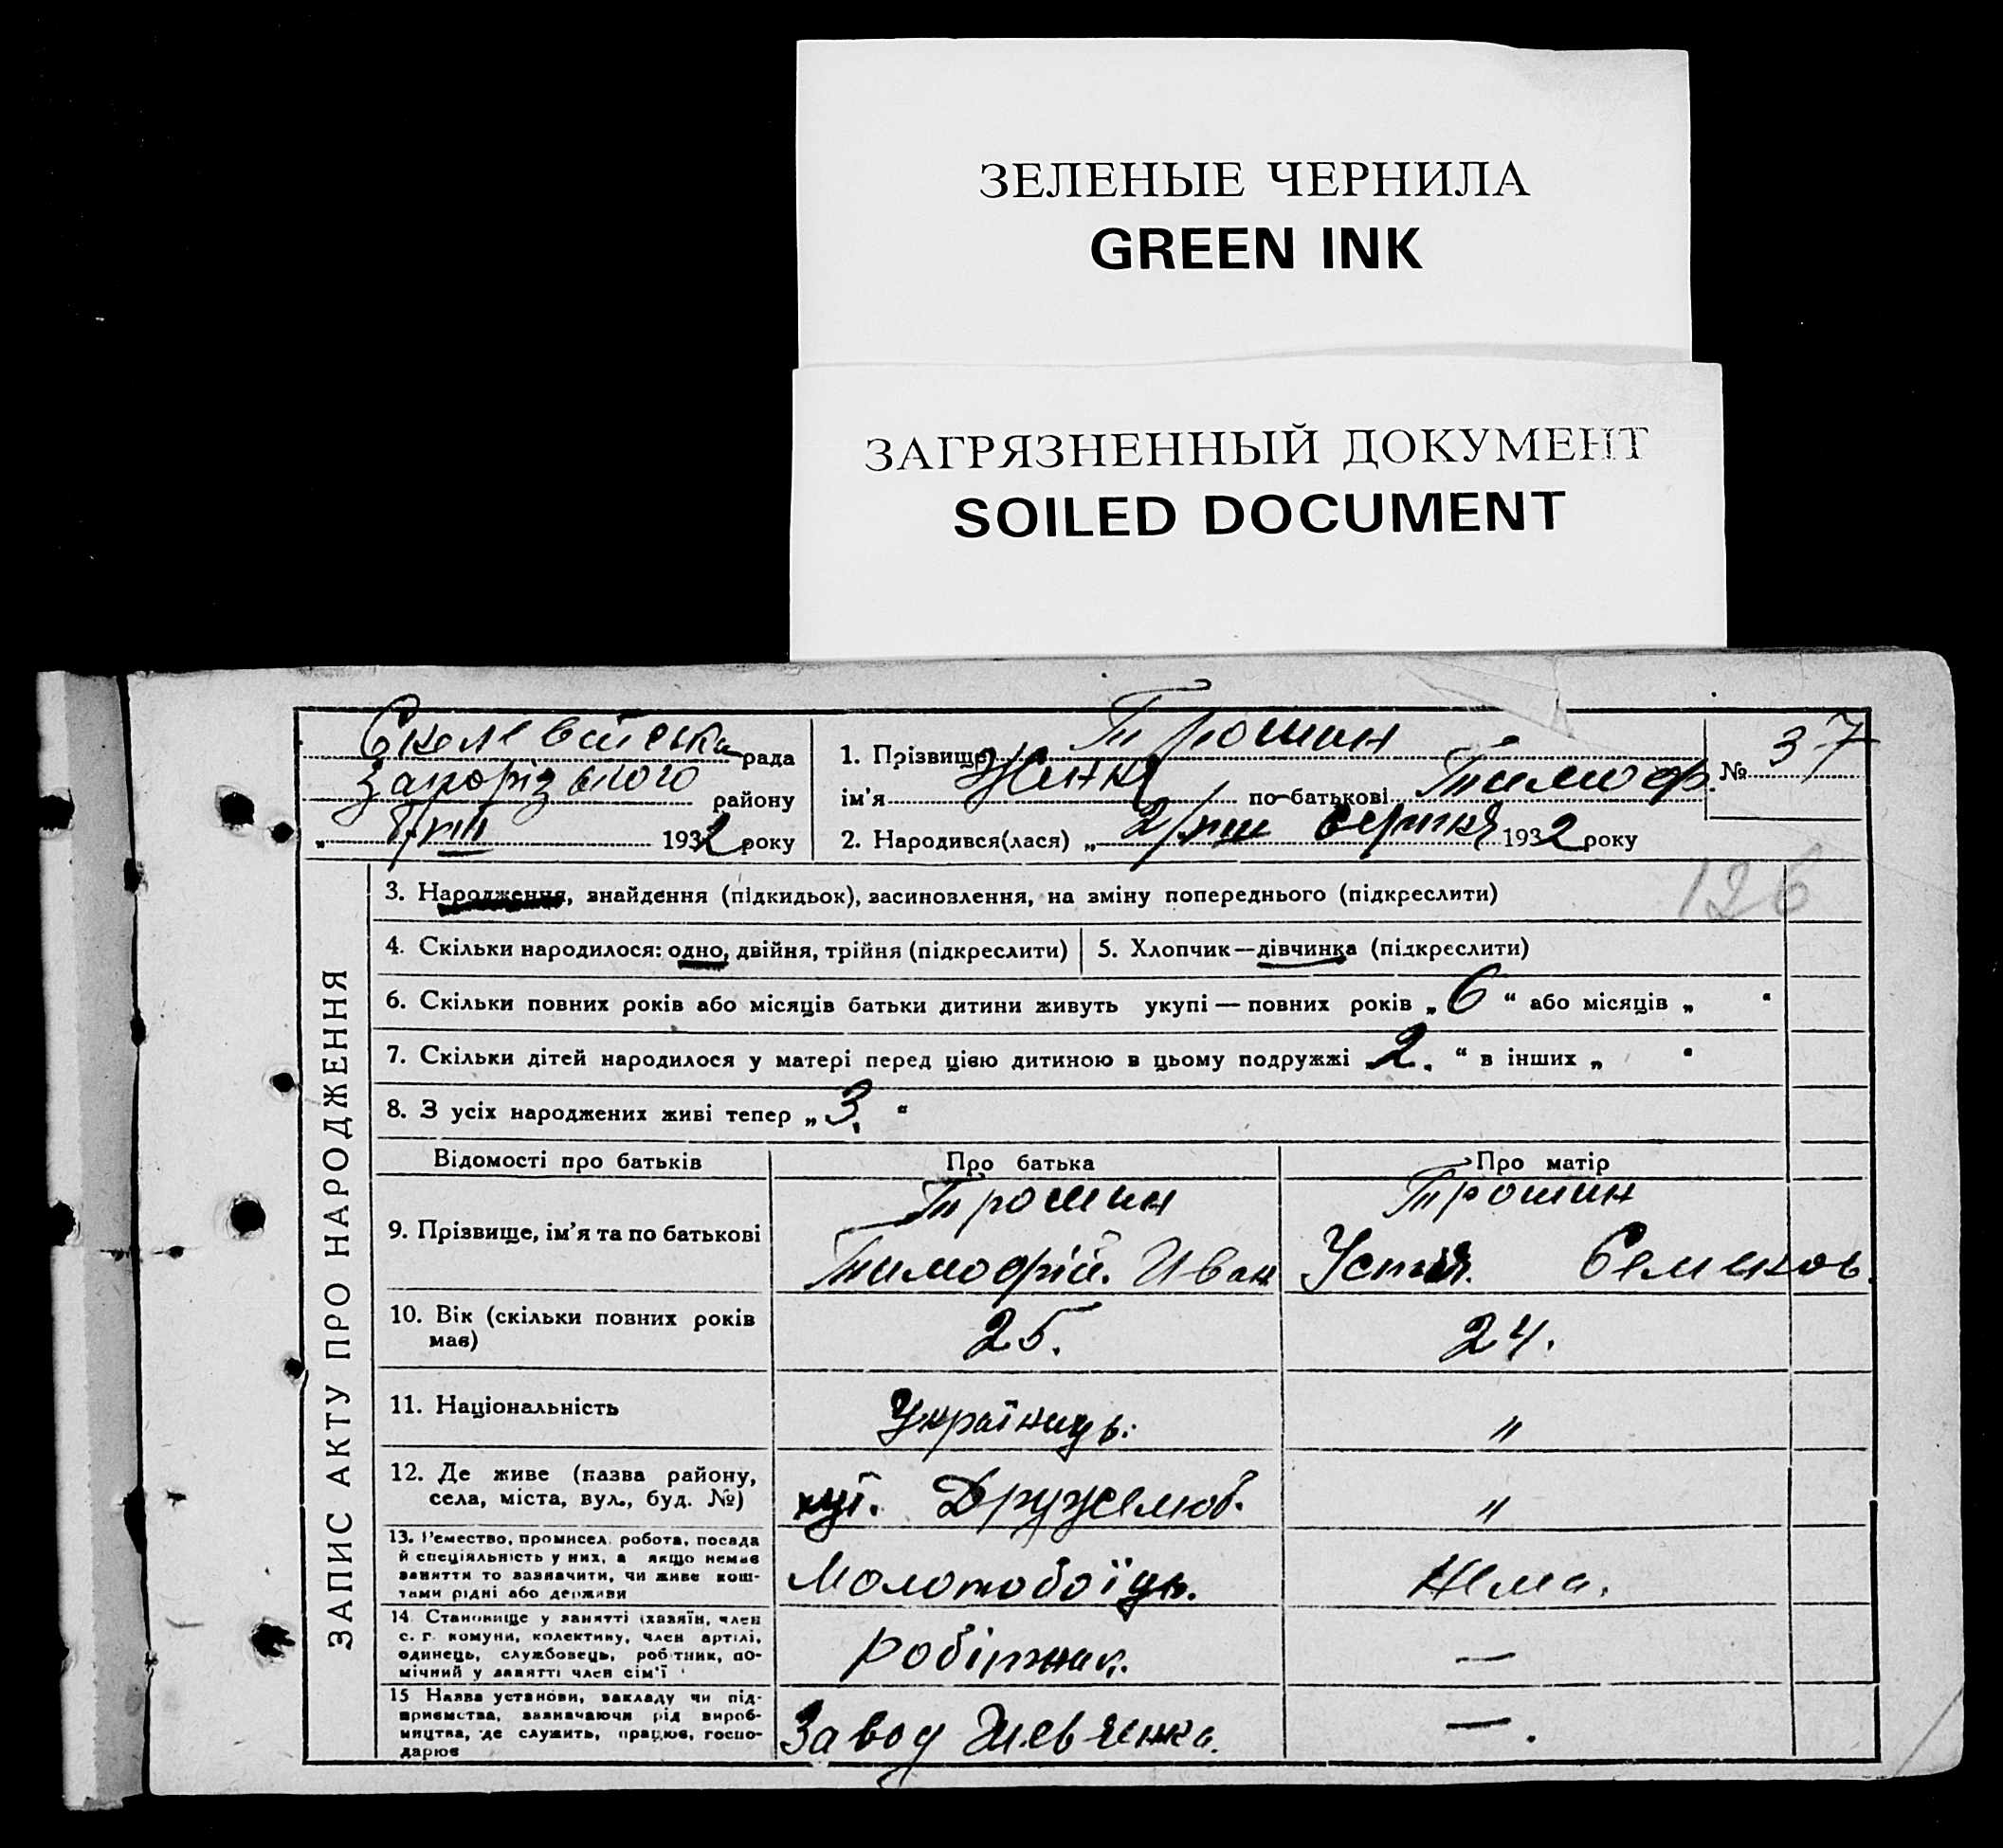 ЗЕЛЕНЫЕ ЧЕРНИЛА
GREEN INK
ЗАГРЯЗНЕННЫЙ ДОКУМЕНТ
SOILED DOCUMENT
рада
Запорізького району
1932 року
1. Прізвище Трошин
ім'я по-батькові Тимоф.
2. Народився(лася) „ 2/VIII серпня 1932 року
№ 37
126
ЗАПИС АКТУ ПРО НАРОДЖЕННЯ
3. Народження, знайдення (підкидьок), засиновлення, на зміну попереднього (підкреслити)
4. Скільки народилося: одно, двійня, трійня (підкреслити)
5. Хлопчик—дівчинка (підкреслити)
6. Скільки повних років або місяців батьки дитини живуть укупі — повних років „ 6 “ або місяців „ “
7. Скільки дітей народилося у матері перед цією дитиною в цьому подружжі „ 2. “ в інших „ “
8. З усіх народжених живі тепер „ 3. “
Відомості про батьків Про батька Про матір
9. Прізвище, ім'я та по батькові
Трошин
Тимофій. Иван
Трошин
Устия. Семенов.
10. Вік (скільки повних років
має)
25.
24.
11. Національність
Українець.
"
12. Де живе (назва району,
села, міста, вул., буд. №)
Дружелюб.
"
13. Ремество, промисел. робота, посада
й спеціяльність у них, а якщо немає
заняття то зазначити, чи живе кош-
тами рідні або держави
Молотобоїць.
Нема.
14. Становище у занятті (хазяїн, член
с. г. комуни, колективу, член артілі,
одинець, службовець, робітник, по-
мічний у занятті член сім'ї
робітник.
—
15 Назва установи, закладу чи під-
приємства, зазначаючи рід вироб-
ництва, де служить, працює, госпо-
дарює
Завод Шевченка.
— .